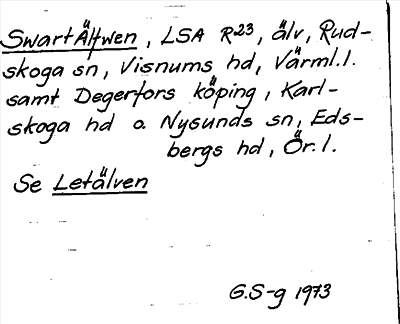 Swart Älfwen, LSA R23, älv, Rud-
skoga sn, Visnums hd, Värml.l.
samt Degerfors köping, Karl-
skoga hd o. Nysunds sn, Eds-
bergs hd, Ör.l.
Se Letälven
G.S-g 1973